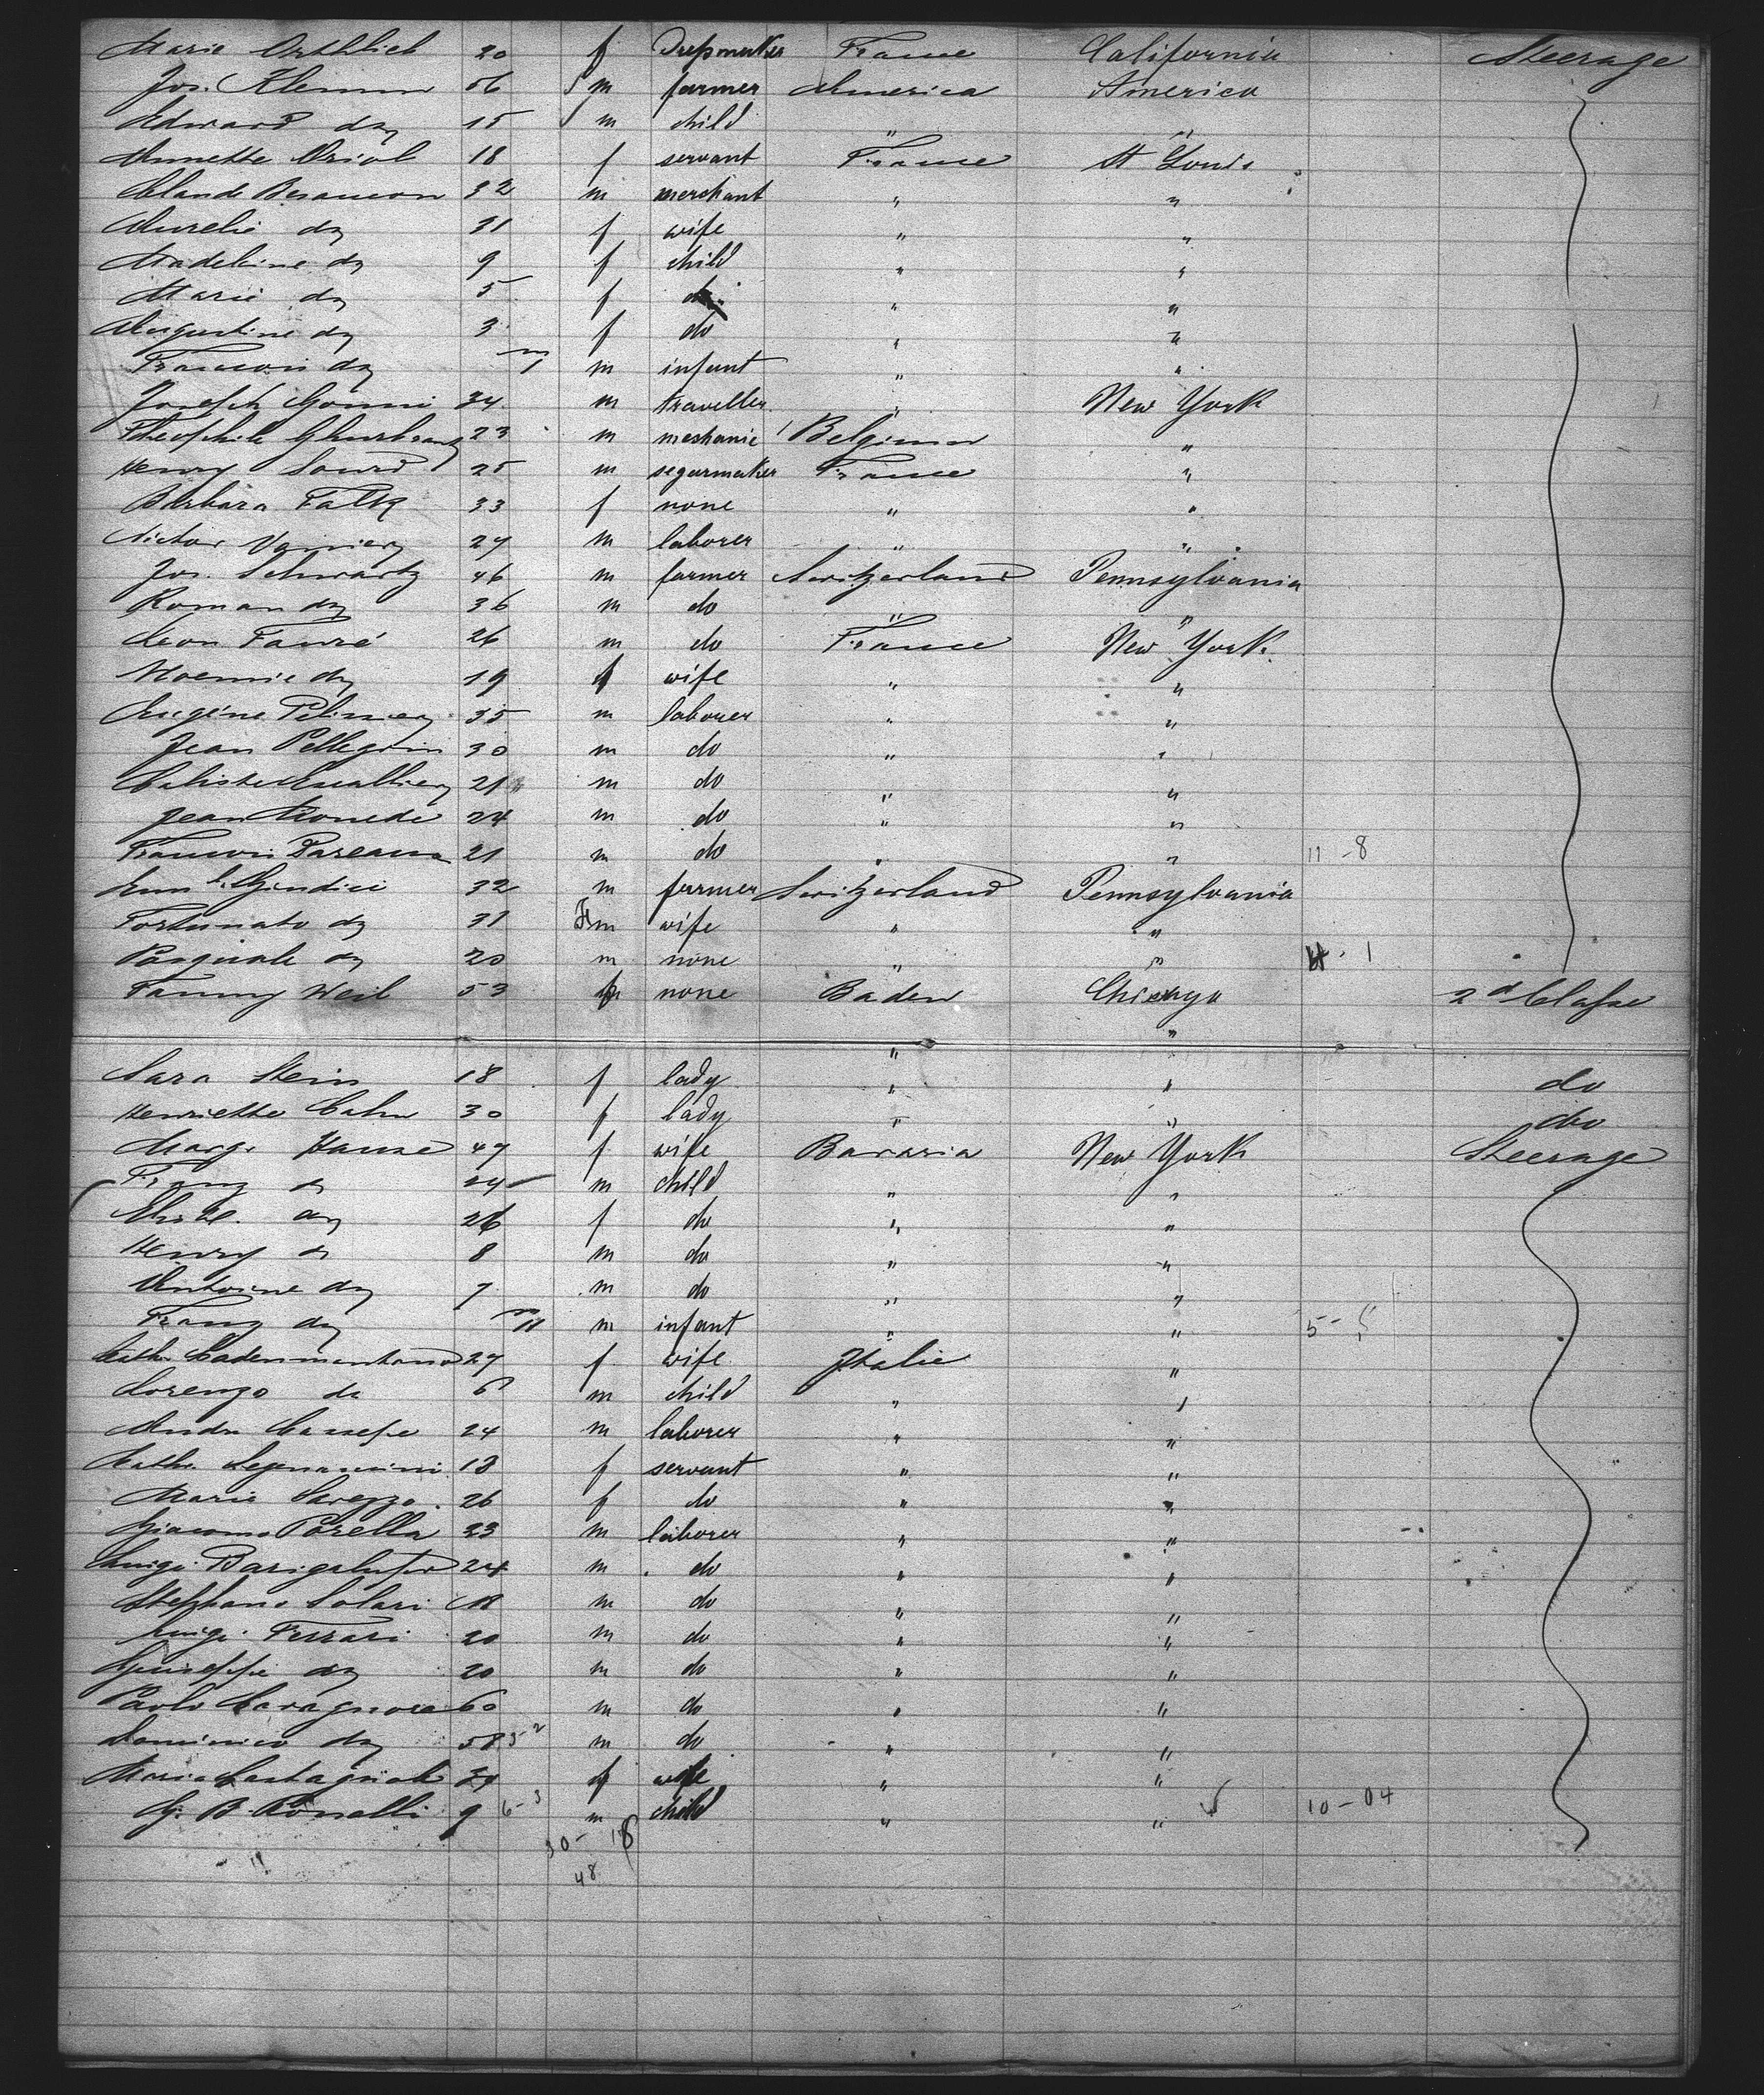 Marie Orthlieb 20 f Dressmaker France California Steerage
Jos. Klemm 56 m farmer America America
Edward do 15 m child " "
Annette Oriol 18 f servant France St Louis
Claude Besancon 32 m merchant " "
Aurelie do 31 f wife " "
Madeleine do 9 f child " "
Marie do 5 f do " "
Augustine do 3 f do " "
Francois do m m infant " "
Joseph 34 m traveller " New York
Theophile 23 m mechanic Belgium "
Henry Sourd 25 m segarmaker France "
Barbara Falk 33 f none " "
Victor 27 m laborer " "
Jos. Schwartz 46 m farmer Switzerland Pennsylvania
Roman do 36 m do " "
Leon Fauré 26 m do France New York
Noemie do 19 f wife " "
Eugéne 35 m laborer " "
Jean Pellegrin 30 m do " "
Caliste 21 m do " "
Jean 24 m do " "
Francois 21 m do " " 11 - 8
Giudici 32 m farmer Switzerland Pennsylvania
Fortunato do 31 F m wife " "
Pasquale do 20 m none " " 1
Fanny Weil 53 f none Baden Chicago 2d Classe
" "
Sara Stein 18 f lady " " do
Henriette Cahn 30 f lady " " do
Marg. Hause 47 f wife Bavaria New York Steerage
Franz do 24 m child " "
do 26 f do " "
Henry do 8 m do " "
Antoine do 7 m do " "
Franz do m 11 m infant " " 5 -
Cath. 27 f wife Italie "
Lorenzo do 6 m child " "
24 m laborer " "
Cath. 13 f servant " "
Marie 26 f do " "
Giacomo Porella 23 m laborer " "
Luigi 24 m do " "
Stephano Solari 18 m do " "
Luigi Ferrari 20 m do " "
Giuseppe do 20 m do " "
Paolo 60 m do " "
Dominico do 58 5-2 m do " "
Maria f wife " "
G. B. 9 6-3 m child " " 10-04
30 - 18
48